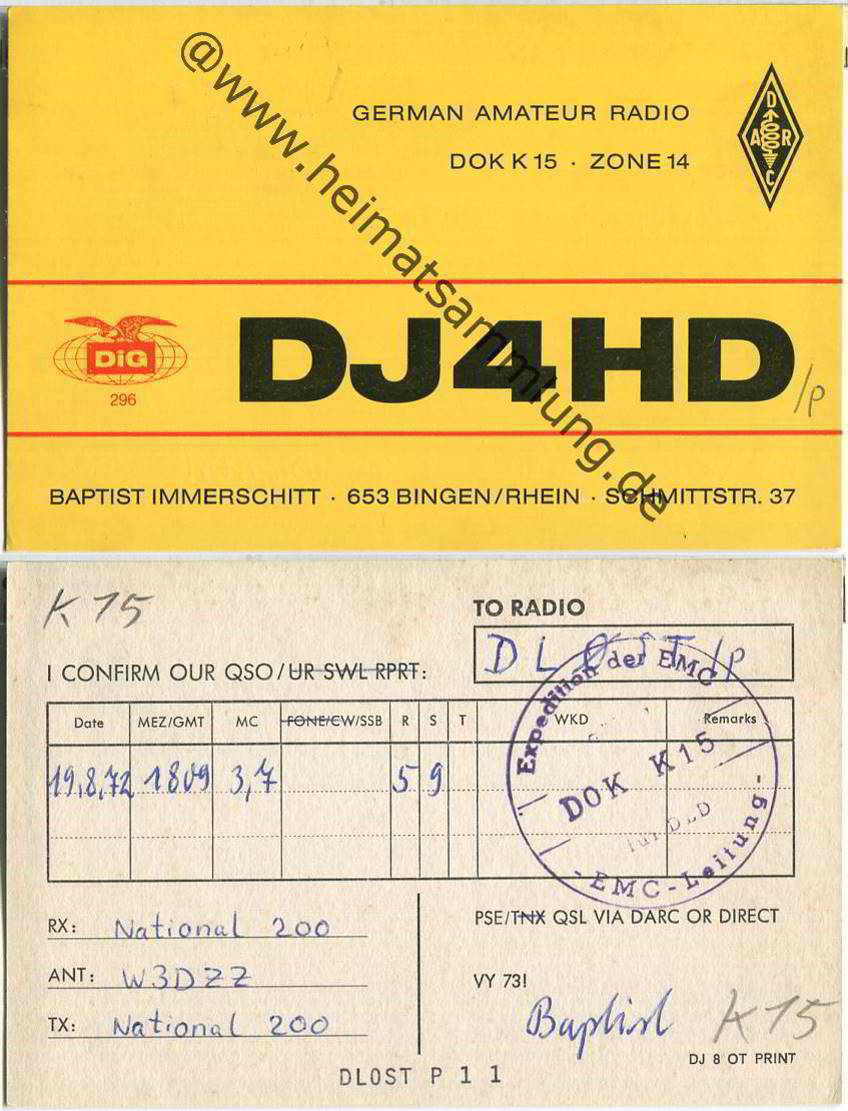 @www.heimatsammlung.de
GERMAN AMATEUR RADIO
DOK K 15 · ZONE 14
D
A R
C
DiG
296
DJ4HD/p
BAPTIST IMMERSCHITT · 653 BINGEN/RHEIN · SCHMITTSTR. 37
K 15
TO RADIO
DLØST/p
I CONFIRM OUR QSO/UR SWL RPRT:
Date MEZ/GMT MC FONE/CW/SSB R S T WKD Remarks
19,8,72 1809 3,7 5 9
Expedition der EMC
DOK K15
für DLD
- EMC - Leitung -
RX: National 200
ANT: W3DZZ
TX: National 200
PSE/TNX QSL VIA DARC OR DIRECT
VY 73!
Baptist K15
DJ 8 OT PRINT
DLOST P 1 1